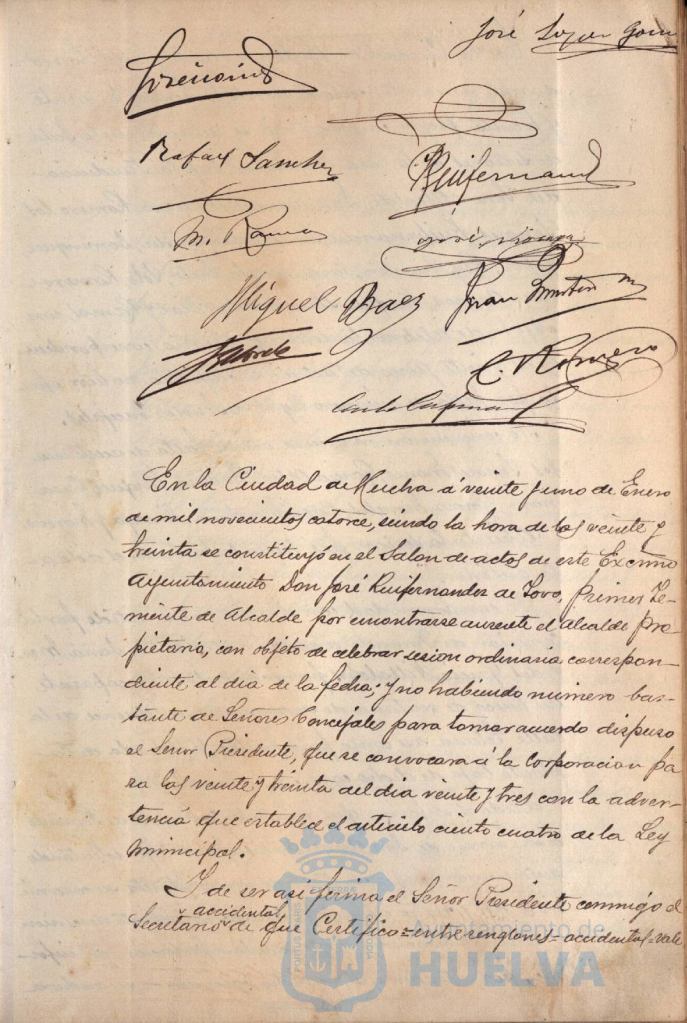 José López Gom
Rafael Sanchez
Ruifernand
M. Romero
Miguel Baez
Juan
C. Romero
En la Ciudad de Huelva á veinte y uno de Enero
de mil novecientos catorce, siendo la hora de las veinte y
treinta se constituyó en el Salon de actos de este Excmo
Ayuntamiento Don José Ruifernandez de Tovo, Primer Te-
niente de Alcalde por encontrarse ausente el alcalde pro-
pietario, con objeto de celebrar sesion ordinaria correspon-
diente al dia de la fecha; y no habiendo número bas-
tante de Señores Concejales para tomar acuerdo dispuso
el Señor Presidente, que se convocara á la Corporacion pa
ra las veinte y treinta del dia veinte y tres con la adver-
tencia que establece el articulo ciento cuatro de la Ley
Municipal.
Y de ser asi firma el Señor Presidente conmigo el
accidental
Secretario de que Certifico = entre renglones = accidental = vale
Ayuntamiento de
HUELVA